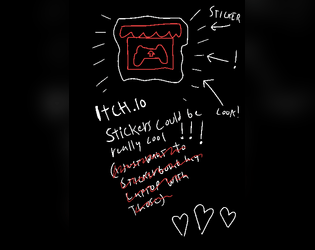 STICKER
!
LOOK!
ItcH.io
Stickers could be
really cool !!!
(I just want to
Stickerbomb my
Laptop with
those)